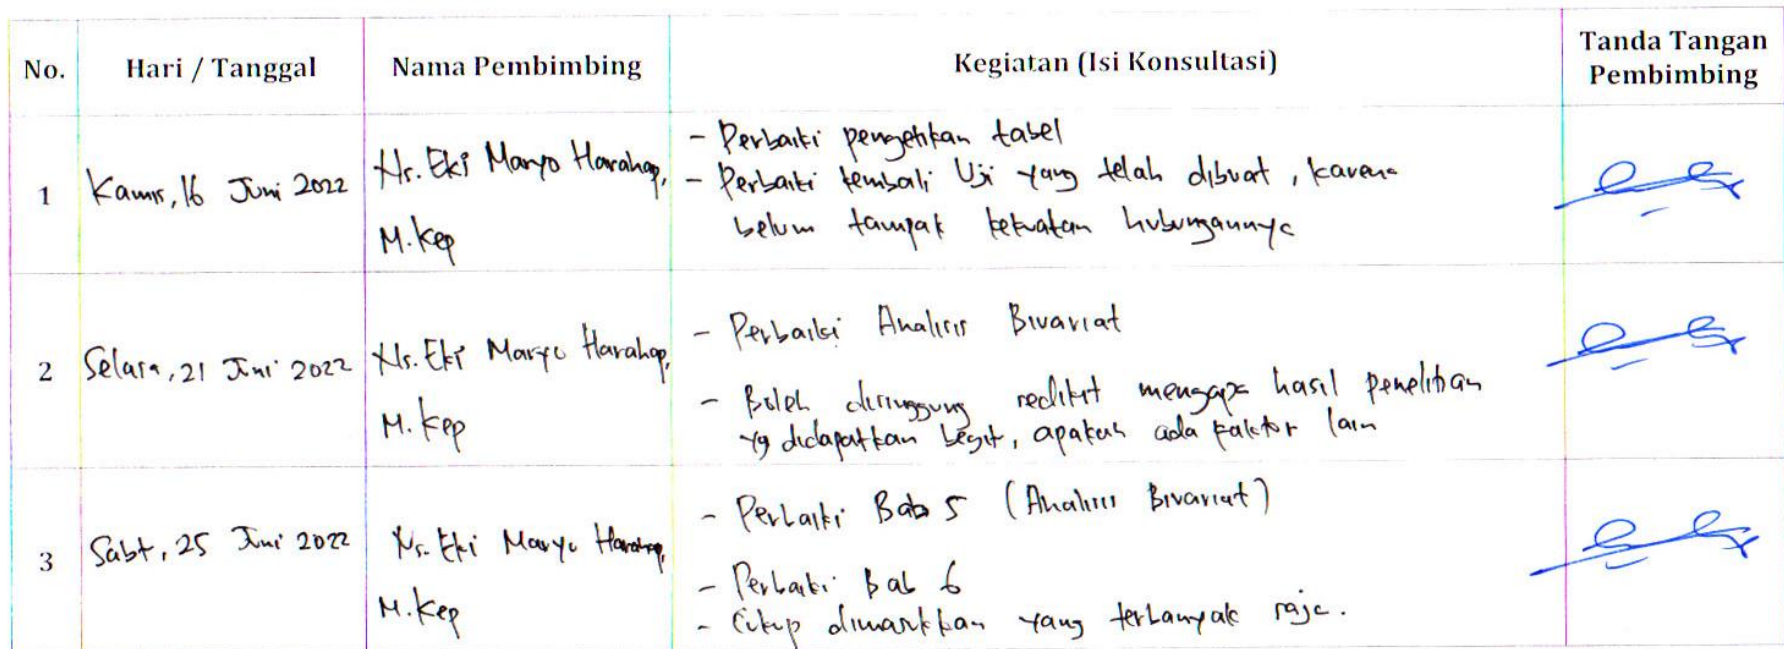 No.
Hari / Tanggal
Nama Pembimbing
Kegiatan (Isi Konsultasi)
Tanda Tangan
Pembimbing
1
Kamis, 16 Juni 2022
Ns. Eki Maryo Harahap,
M.Kep
- Perbaiki pengetikan tabel
- Perbaiki kembali Uji yang telah dibuat, karena
belum tampak kekuatan hubungannya
2
Selasa, 21 Juni 2022
Ns. Eki Maryo Harahap,
M.Kep
- Perbaiki Analisis Bivariat
- Boleh disinggung sedikit mengapa hasil penelitian
yg didapatkan begit, apakah ada faktor lain
3
Sabt, 25 Juni 2022
Ns. Eki Maryo Harahap,
M.Kep
- Perbaiki Bab 5 (Analisis Bivariat)
- Perbaiki Bab 6
- Cukup dimasukkan yang terbanyak saja.